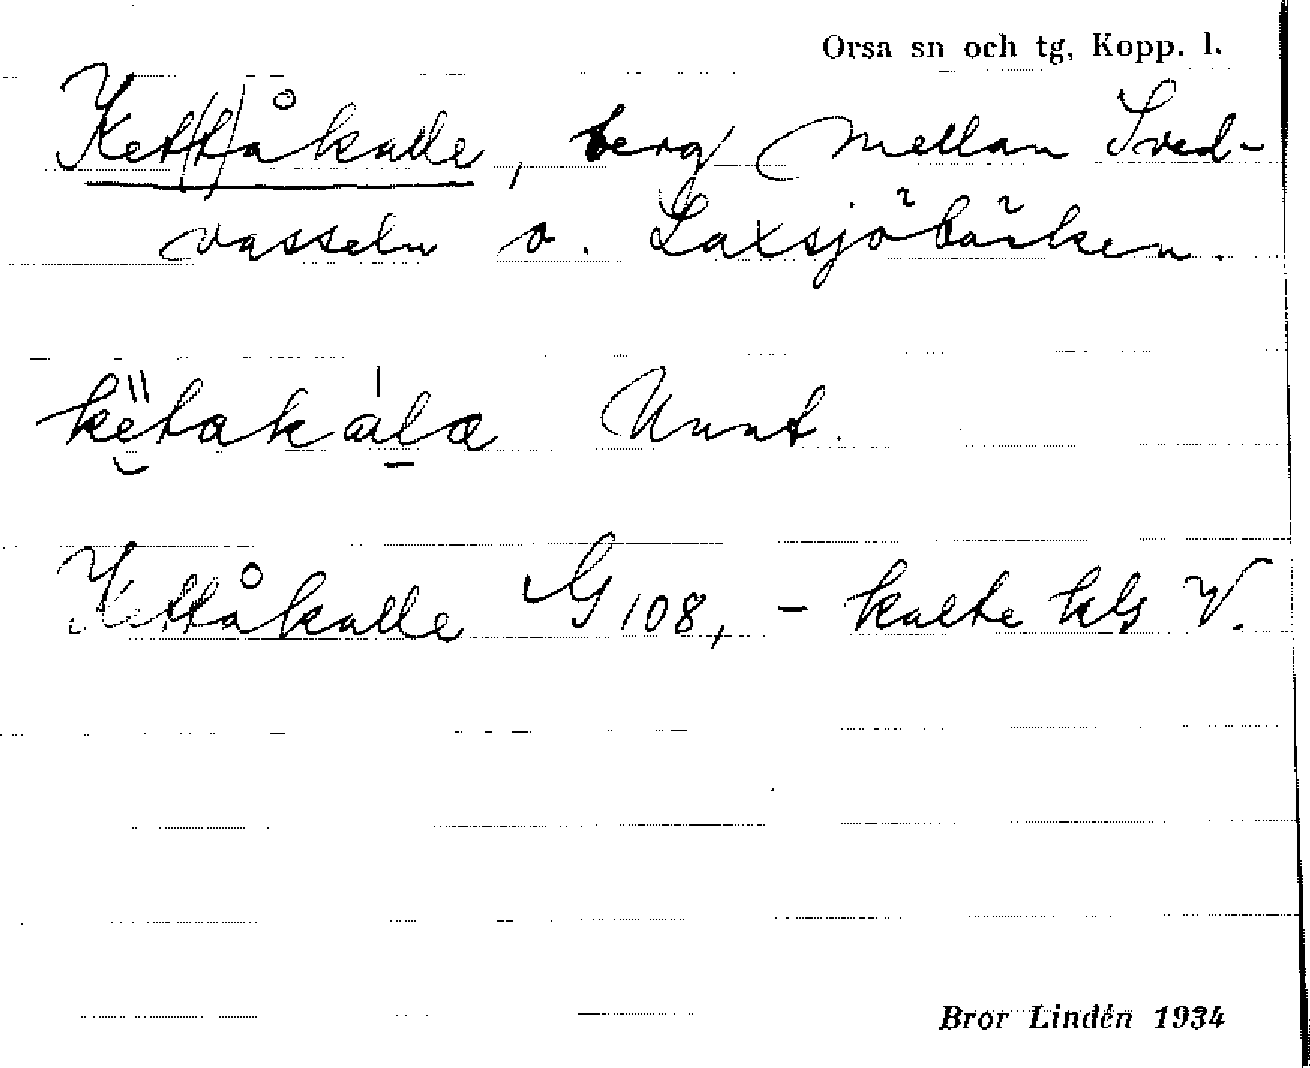 Orsa sn och tg, Kopp. l.
Ket(t)åkalle, berg mellan Sved-
vasseln o. Laxsjöbäcken.
Kettåkalle G 108, – kalte kls V.
Bror Lindén 1934